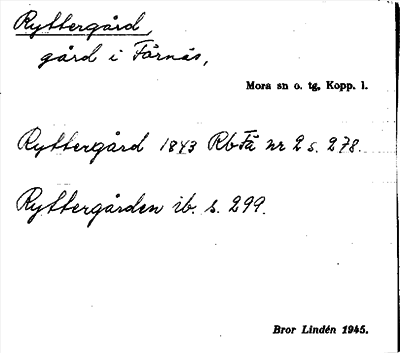 Ryttergård,
gård i Färnäs,
Mora sn o. tg, Kopp. l.
Ryttergård 1843 RbFä nr 2 s. 278.
Ryttergården ib. s. 299.
Bror Lindén 1945.